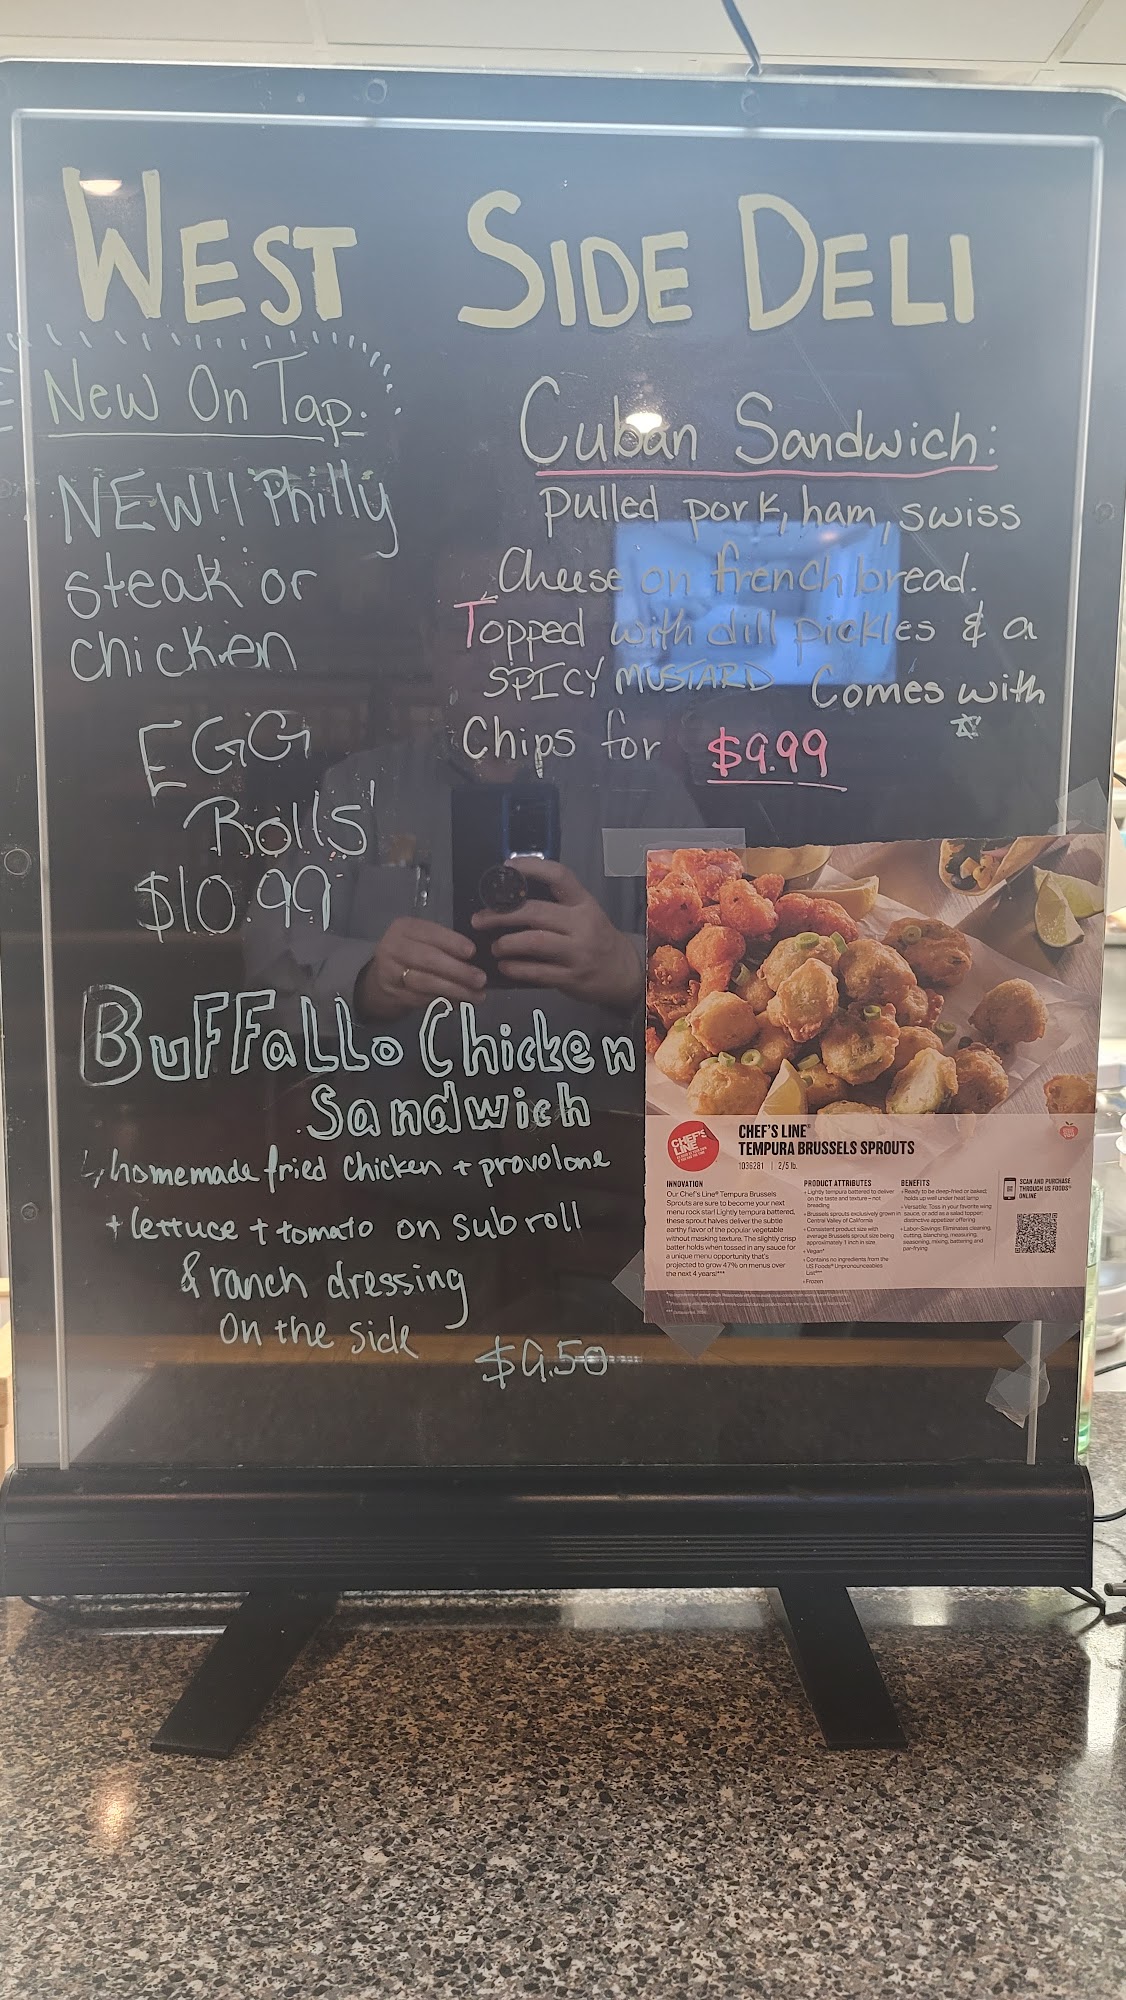 WEST SIDE DELI
New On Tap:
NEW!! Philly
steak or
chicken
EGG
Rolls
$10.99
Cuban Sandwich:
Pulled pork, ham, swiss
Cheese on french bread.
Topped with dill pickles & a
SPICY MUSTARD Comes with
Chips for $9.99
BuFFaLLo Chicken
Sandwich
↳ homemade fried chicken + provolone
+ lettuce + tomato on sub roll
& ranch dressing
On the side
$9.50
CHEF'S LINE
CHEF'S LINE®
TEMPURA BRUSSELS SPROUTS
1036281 | 2/5 lb.
INNOVATION
Our Chef's Line® Tempura Brussels
Sprouts are sure to become your next
menu rock star! Lightly tempura battered,
these sprout halves deliver the subtle
earthy flavor of the popular vegetable
without masking texture. The slightly crisp
batter holds when tossed in any sauce for
a unique menu opportunity that's
projected to grow 47% on menus over
the next 4 years!***
PRODUCT ATTRIBUTES
• Lightly tempura battered to deliver
on the taste and texture – not
breading
• Brussels sprouts exclusively grown in
Central Valley of California
• Consistent product size with
average Brussels sprout size being
approximately 1 inch in size
• Vegan*
• Contains no ingredients from the
US Foods® Unpronounceables
List®**
• Frozen
BENEFITS
• Ready to be deep-fried or baked;
holds up well under heat lamp
• Versatile: Toss in your favorite wing
sauce, or add as a salad topper;
distinctive appetizer offering
• Labor-Savings: Eliminates cleaning,
cutting, blanching, measuring,
seasoning, mixing, battering and
par-frying
SCAN AND PURCHASE
THROUGH US FOODS®
ONLINE